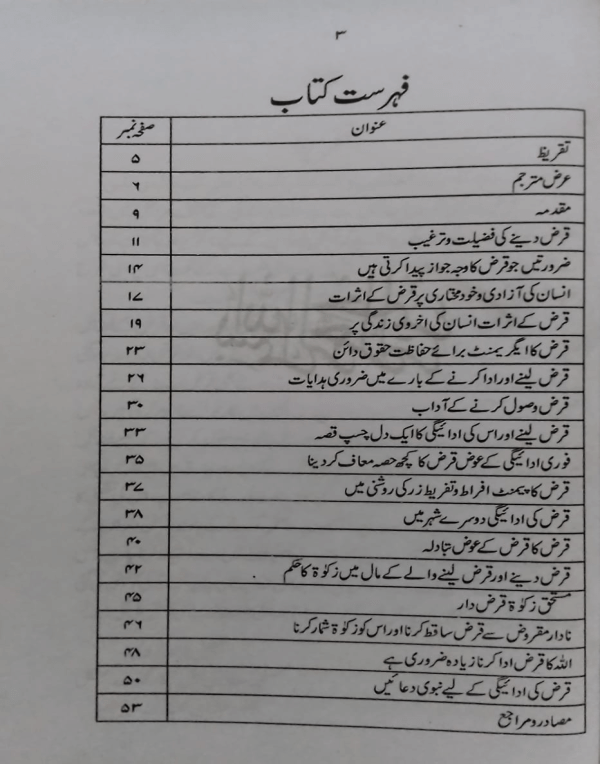 ۳
فہرست کتاب
عنوان صفحہ نمبر
تقریظ ۵
عرض مترجم ۶
مقدمہ ۹
قرض دینے کی فضیلت و ترغیب ۱۱
ضرورتیں جو قرض کا وجہ جواز پیدا کرتی ہیں ۱۴
انسان کی آزادی و خود مختاری پر قرض کے اثرات ۱۷
قرض کے اثرات انسان کی اخروی زندگی پر ۱۹
قرض کا ایگریمنٹ برائے حفاظت حقوق دائن ۲۳
قرض لینے اور ادا کرنے کے بارے میں ضروری ہدایات ۲۶
قرض وصول کرنے کے آداب ۳۰
قرض لینے اور اس کی ادائیگی کا ایک دل چسپ قصہ ۳۳
فوری ادائیگی کے عوض قرض کا کچھ حصہ معاف کر دینا ۳۵
قرض کا پیمنٹ افراط و تفریط زر کی روشنی میں ۳۷
قرض کی ادائیگی دوسرے شہر میں ۳۸
قرض کا قرض کے عوض تبادلہ ۴۰
قرض دینے اور قرض لینے والے کے مال میں زکوٰۃ کا حکم ۴۲
مستحق زکوٰۃ قرض دار ۴۵
نادار مقروض سے قرض ساقط کرنا اور اس کو زکوٰۃ شمار کرنا ۴۶
اللہ کا قرض ادا کرنا زیادہ ضروری ہے ۴۸
قرض کی ادائیگی کے لیے نبوی دعائیں ۵۰
مصادر و مراجع ۵۳